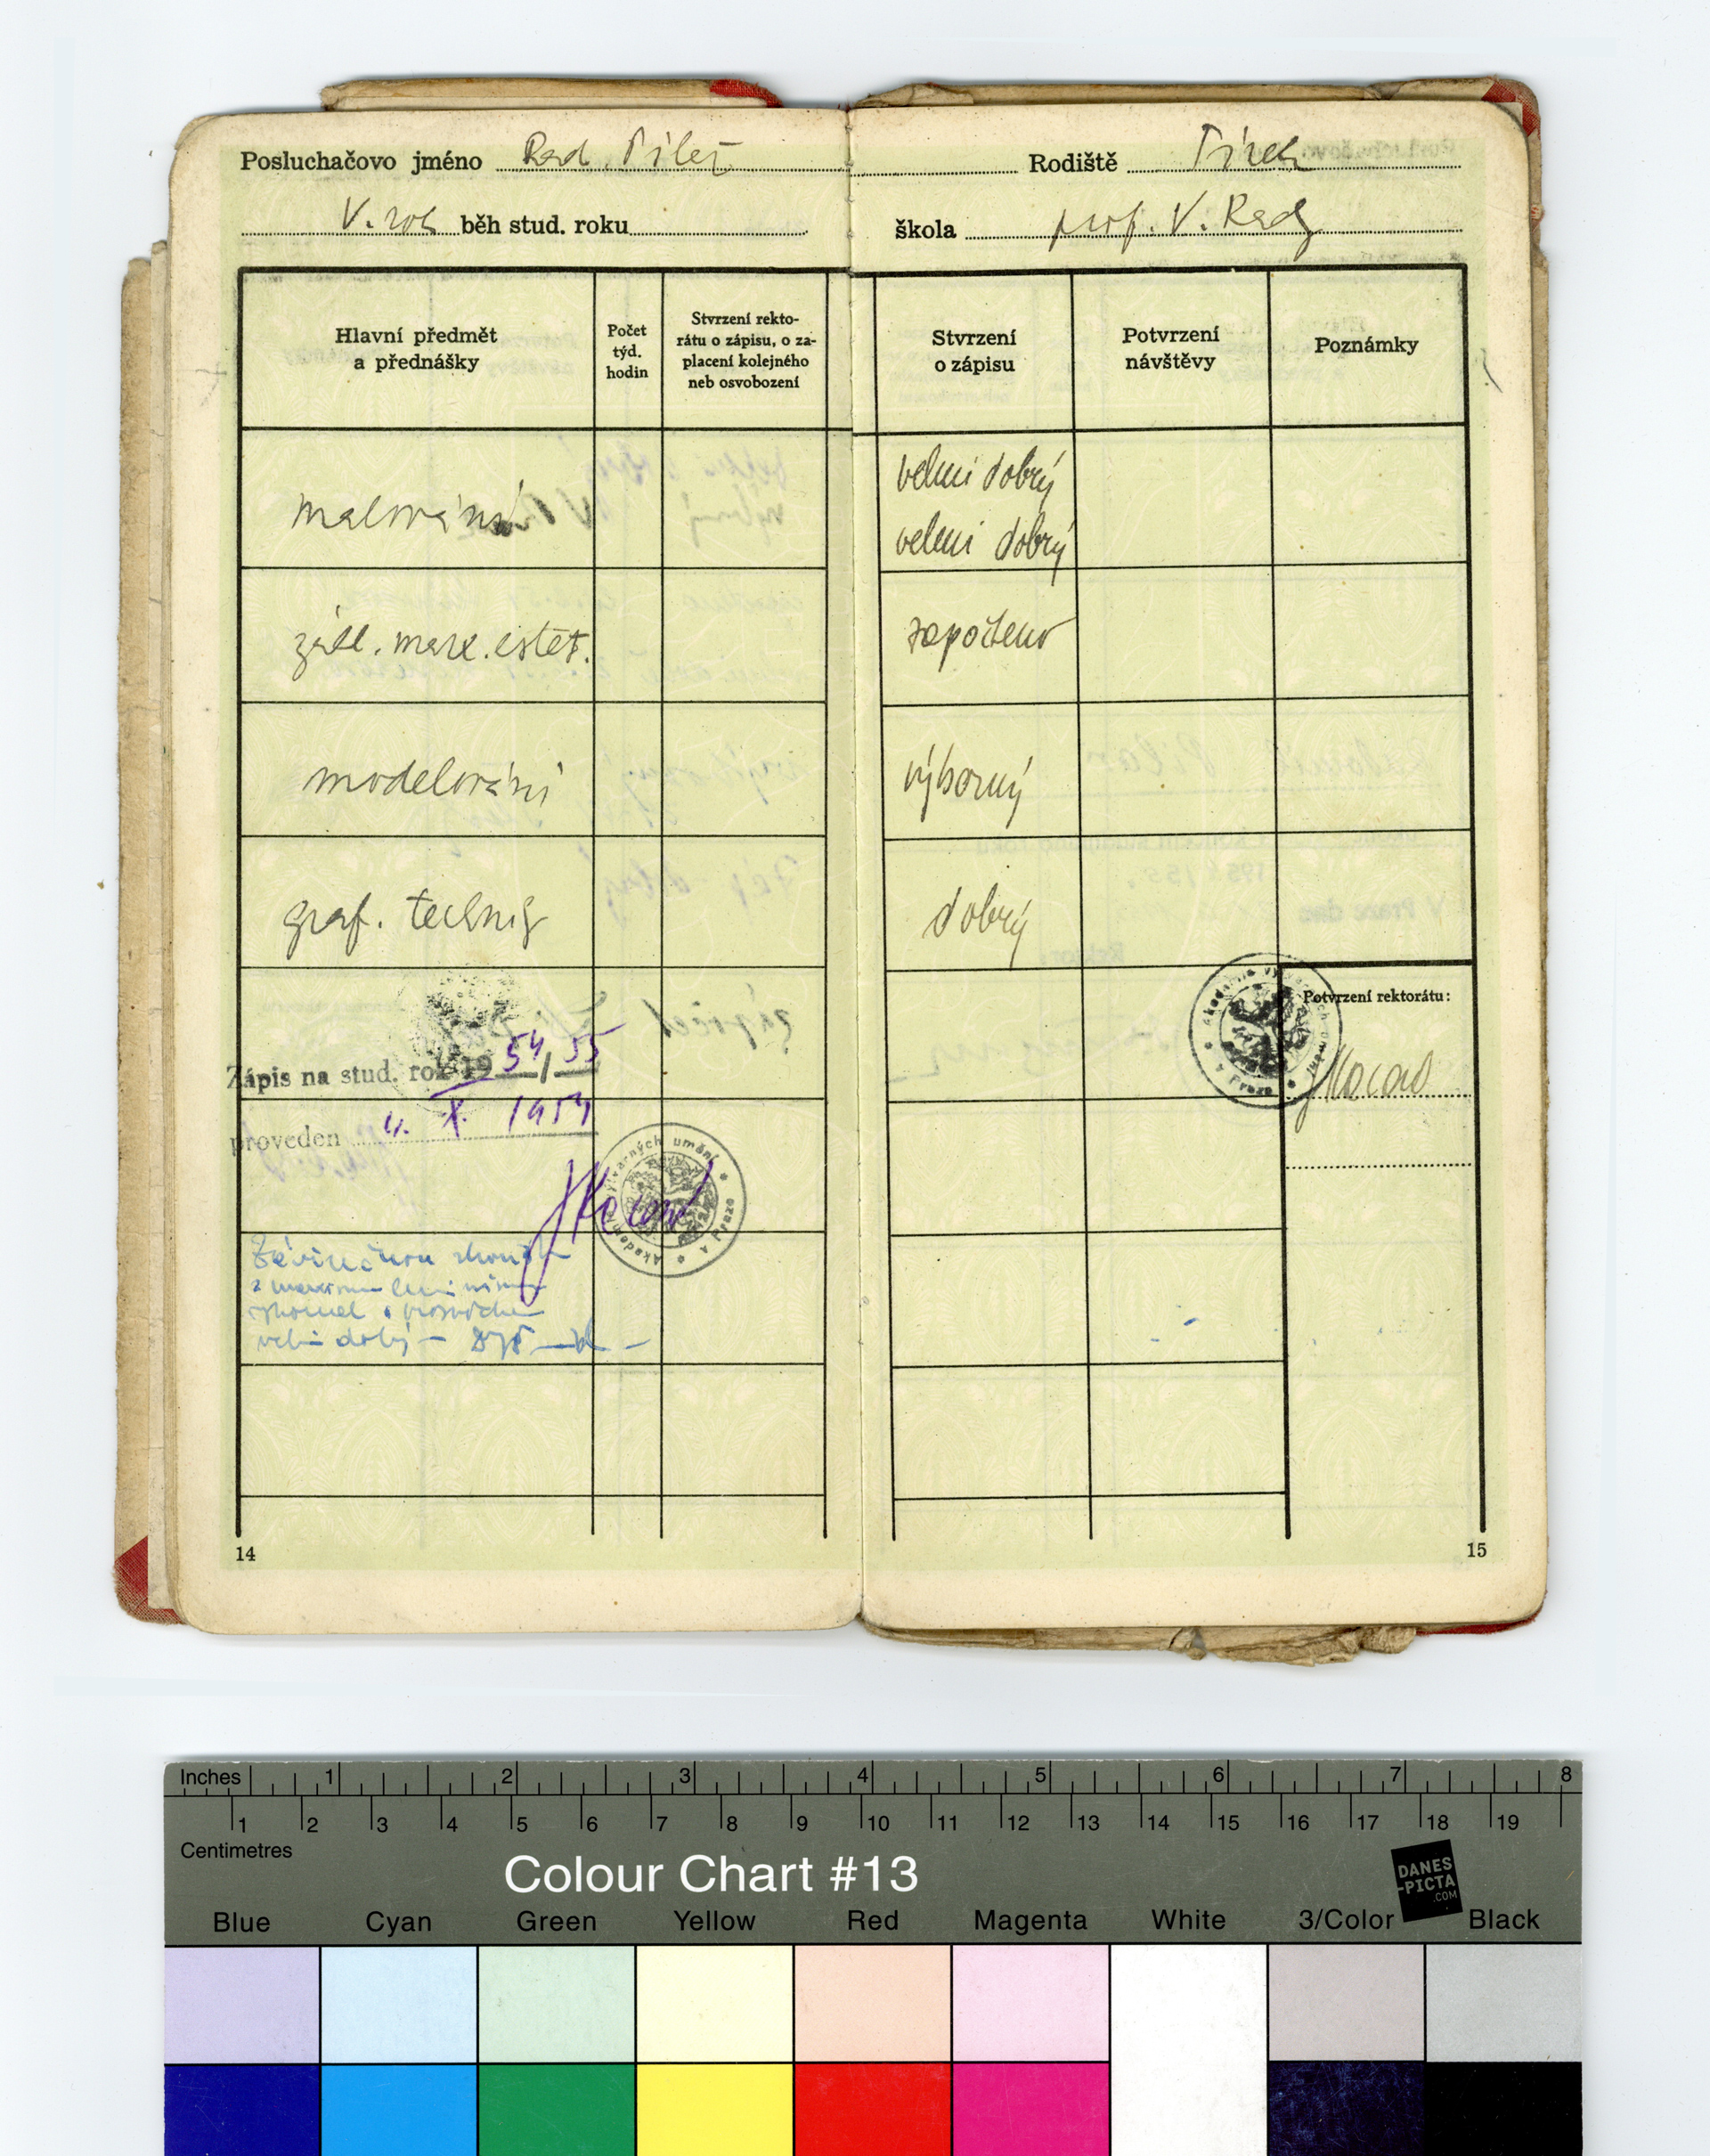 Posluchačovo jméno Rad. Pilař
Rodiště Písek
V. rok běh stud. roku
škola prof. V. Rady
Hlavní předmět
a přednášky
Počet
týd.
hodin
Stvrzení rekto-
rátu o zápisu, o za-
placení kolejného
neb osvobození
Stvrzení
o zápisu
Potvrzení
návštěvy
Poznámky
malování
velmi dobrý
velmi dobrý
zákl. marx. estet.
započteno
modelování
výborný
graf. techniky
dobrý
Zápis na stud. rok 1954/55
proveden 4. X. 1954
Akademie výtvarných umění v Praze
Potvrzení rektorátu:
Akademie výtvarných umění v Praze
velmi dobrý
14
15
Inches 1 2 3 4 5 6 7 8
1 2 3 4 5 6 7 8 9 10 11 12 13 14 15 16 17 18 19
Centimetres
Colour Chart #13
DANES
-PICTA
.COM
Blue Cyan Green Yellow Red Magenta White 3/Color Black